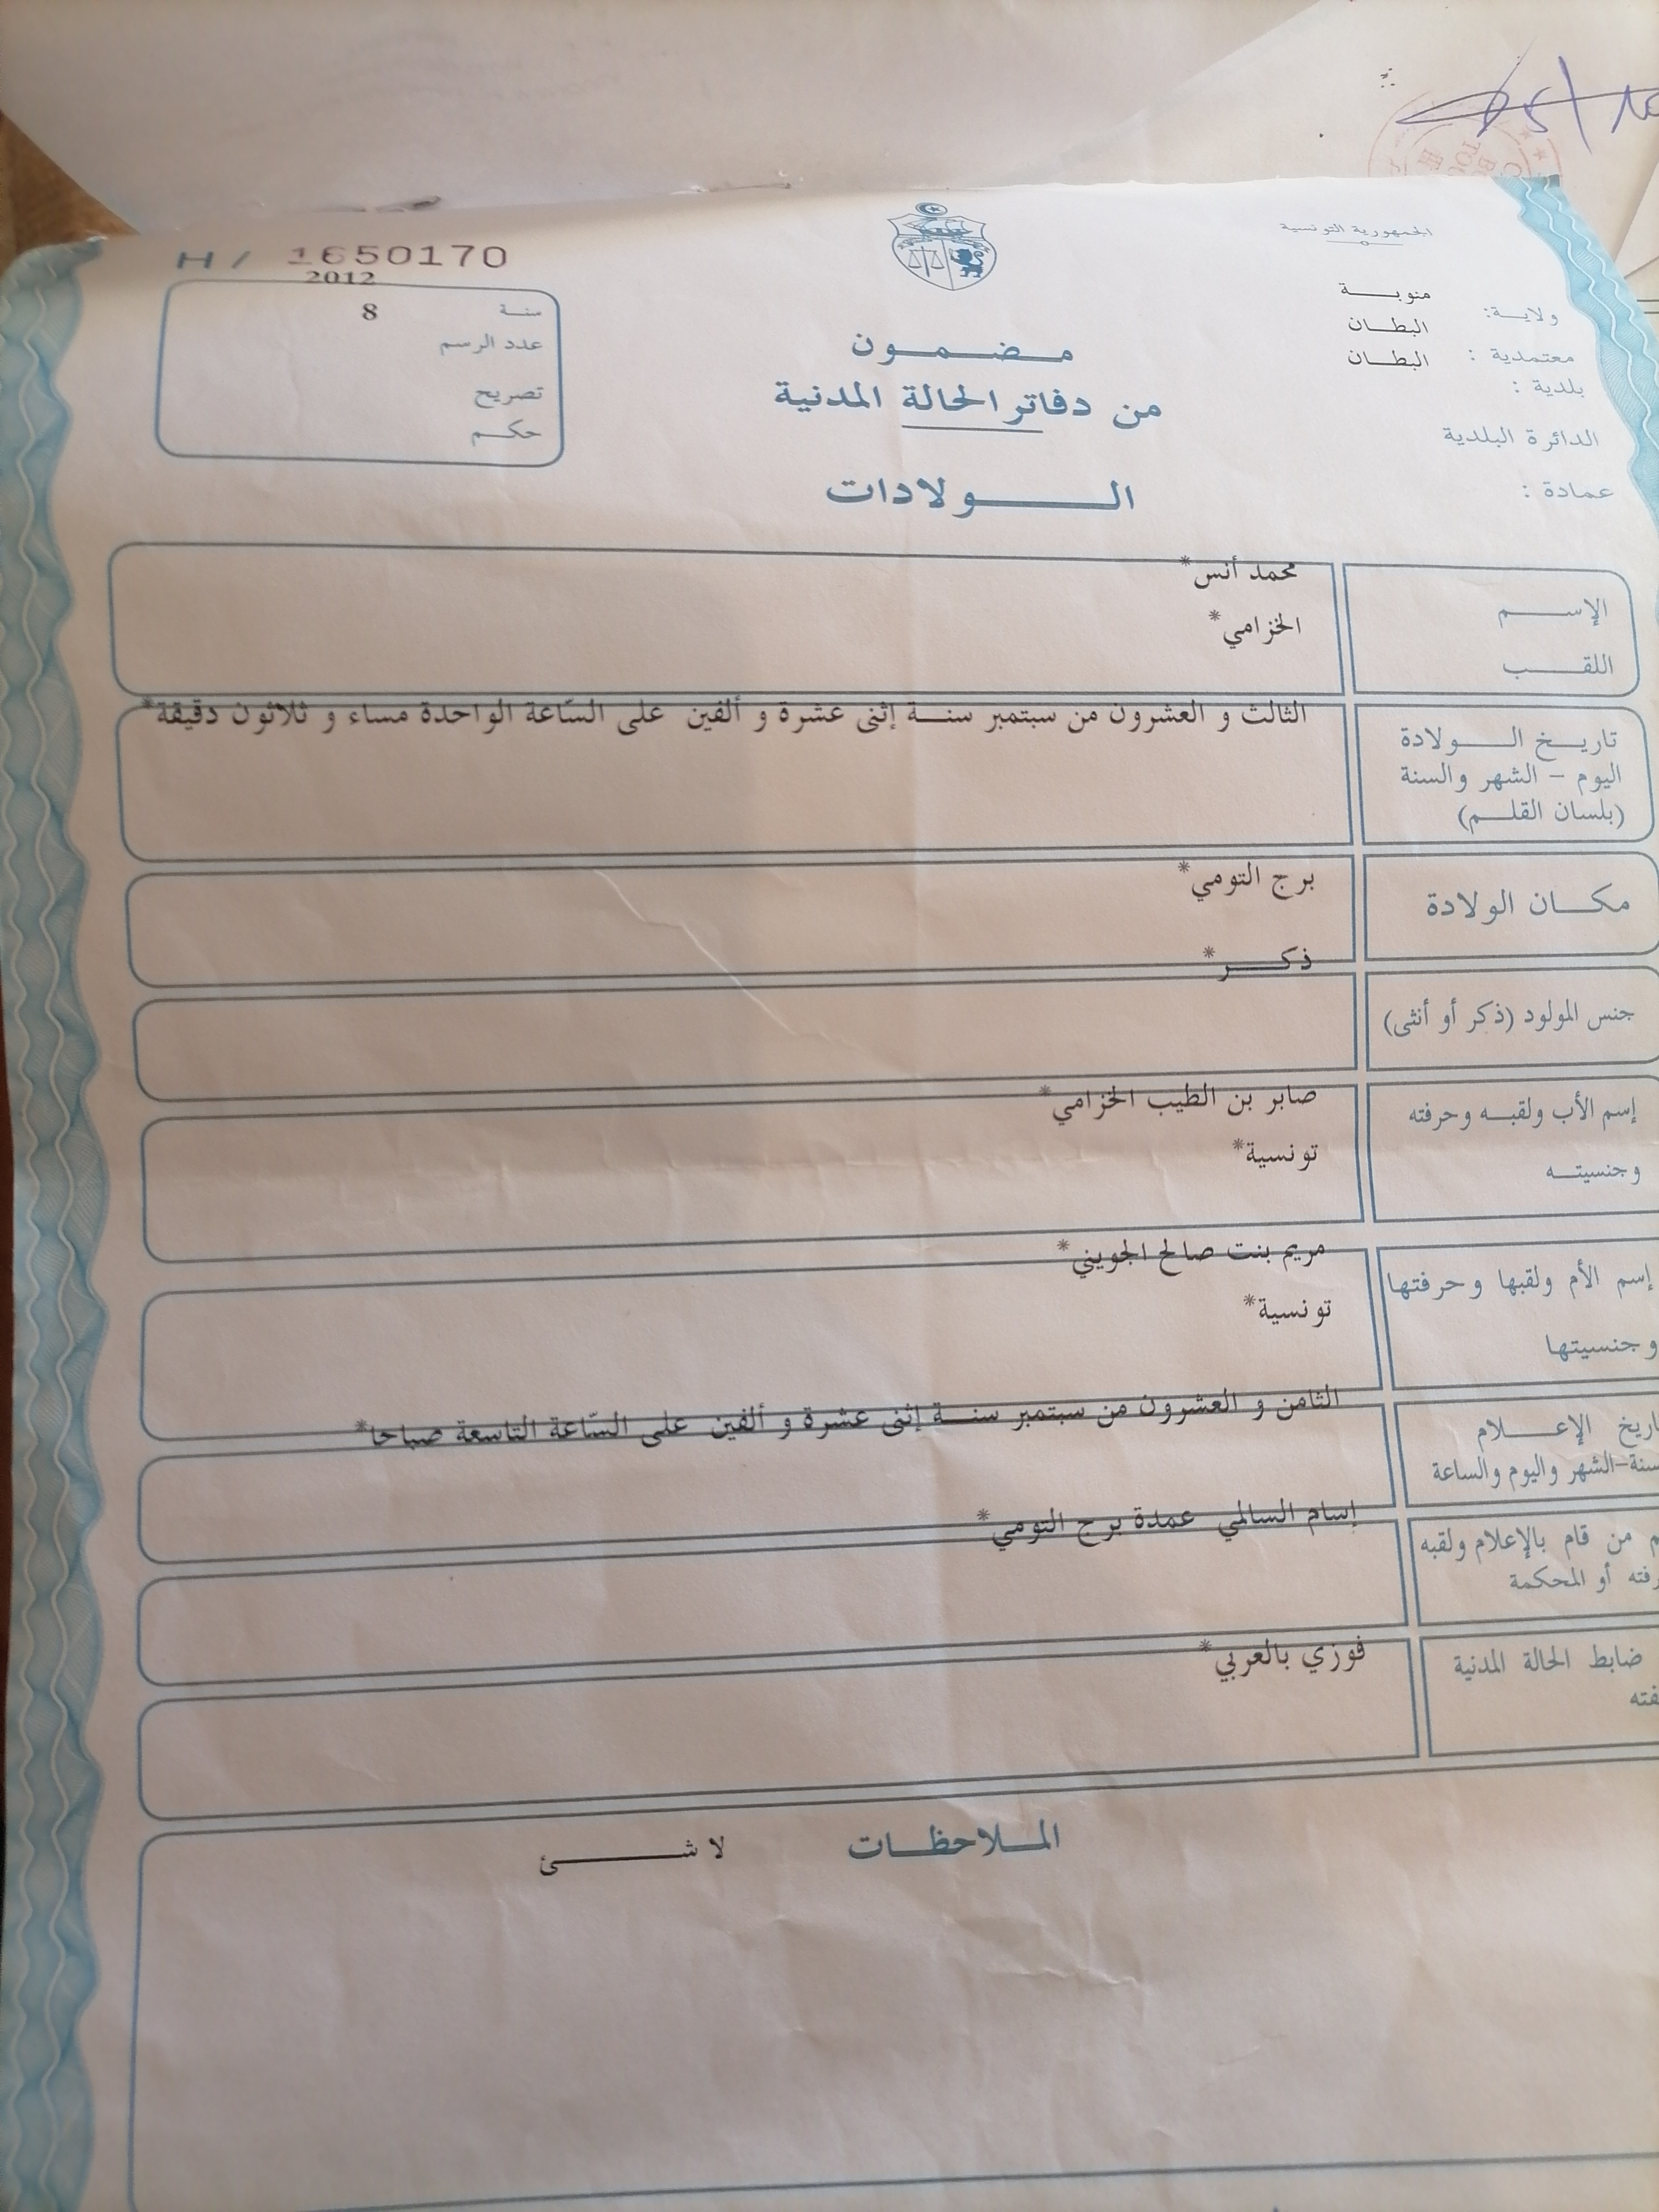 الجمهورية التونسية
ولاية: منوبة
معتمدية : البطان
بلدية : البطان
الدائرة البلدية
عمادة :
H / 1650170
2012
سنة 8
عدد الرسم
تصريح
حكم
مضمون
من دفاتر الحالة المدنية
الولادات
الإسم محمد أنس*
اللقب الخزامي*
الثالث و العشرون من سبتمبر سنة إثنى عشرة و ألفين على السّاعة الواحدة مساء و ثلاثون دقيقة*
تاريخ الولادة
اليوم - الشهر والسنة
(بلسان القلم)
مكان الولادة برج التومي*
ذكر*
جنس المولود (ذكر أو أنثى)
إسم الأب ولقبه وحرفته صابر بن الطيب الخزامي*
وجنسيته تونسية*
إسم الأم ولقبها وحرفتها مريم بنت صالح الجويني*
وجنسيتها تونسية*
الثامن و العشرون من سبتمبر سنة إثنى عشرة و ألفين على السّاعة التاسعة صباحا*
اريخ الإعلام
سنة-الشهر واليوم والساعة
السالمي عمدة برج التومي*
م من قام بالإعلام ولقبه
رفته أو المحكمة
ضابط الحالة المدنية فوزي بالعربي*
فته
الملاحظات لا شئ